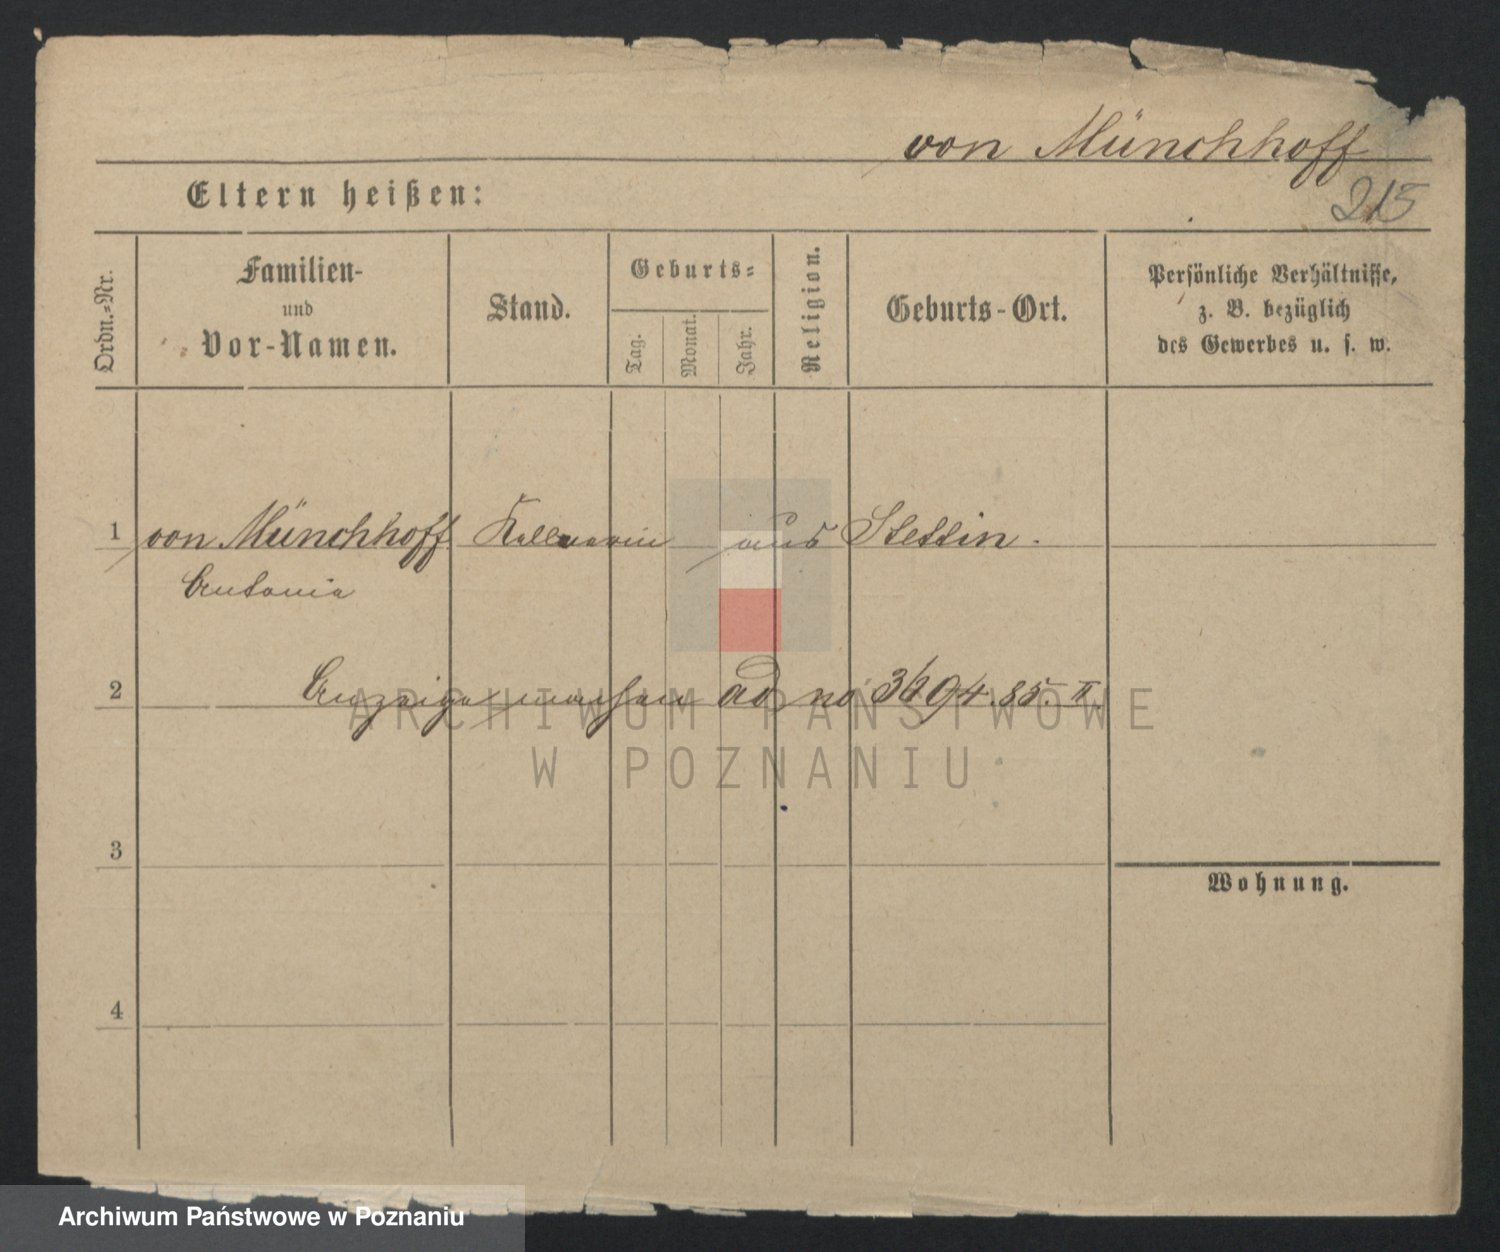 von Münchhoff
215
Eltern heißen:
Ordn.-Nr.
Familien-
und
Vor-Namen.
Stand.
Geburts-
Tag.
Monat.
Jahr.
Religion.
Geburts-Ort.
Persönliche Verhältnisse,
z. B. bezüglich
des Gewerbes u. s. w.
1 von Münchhoff Kellnerin aus Stettin.
Antonie
2 Anzeige machen ad no 3694.85.II.
ARCHIWUM PAŃSTWOWE
W POZNANIU
3
Wohnung.
4
Archiwum Państwowe w Poznaniu